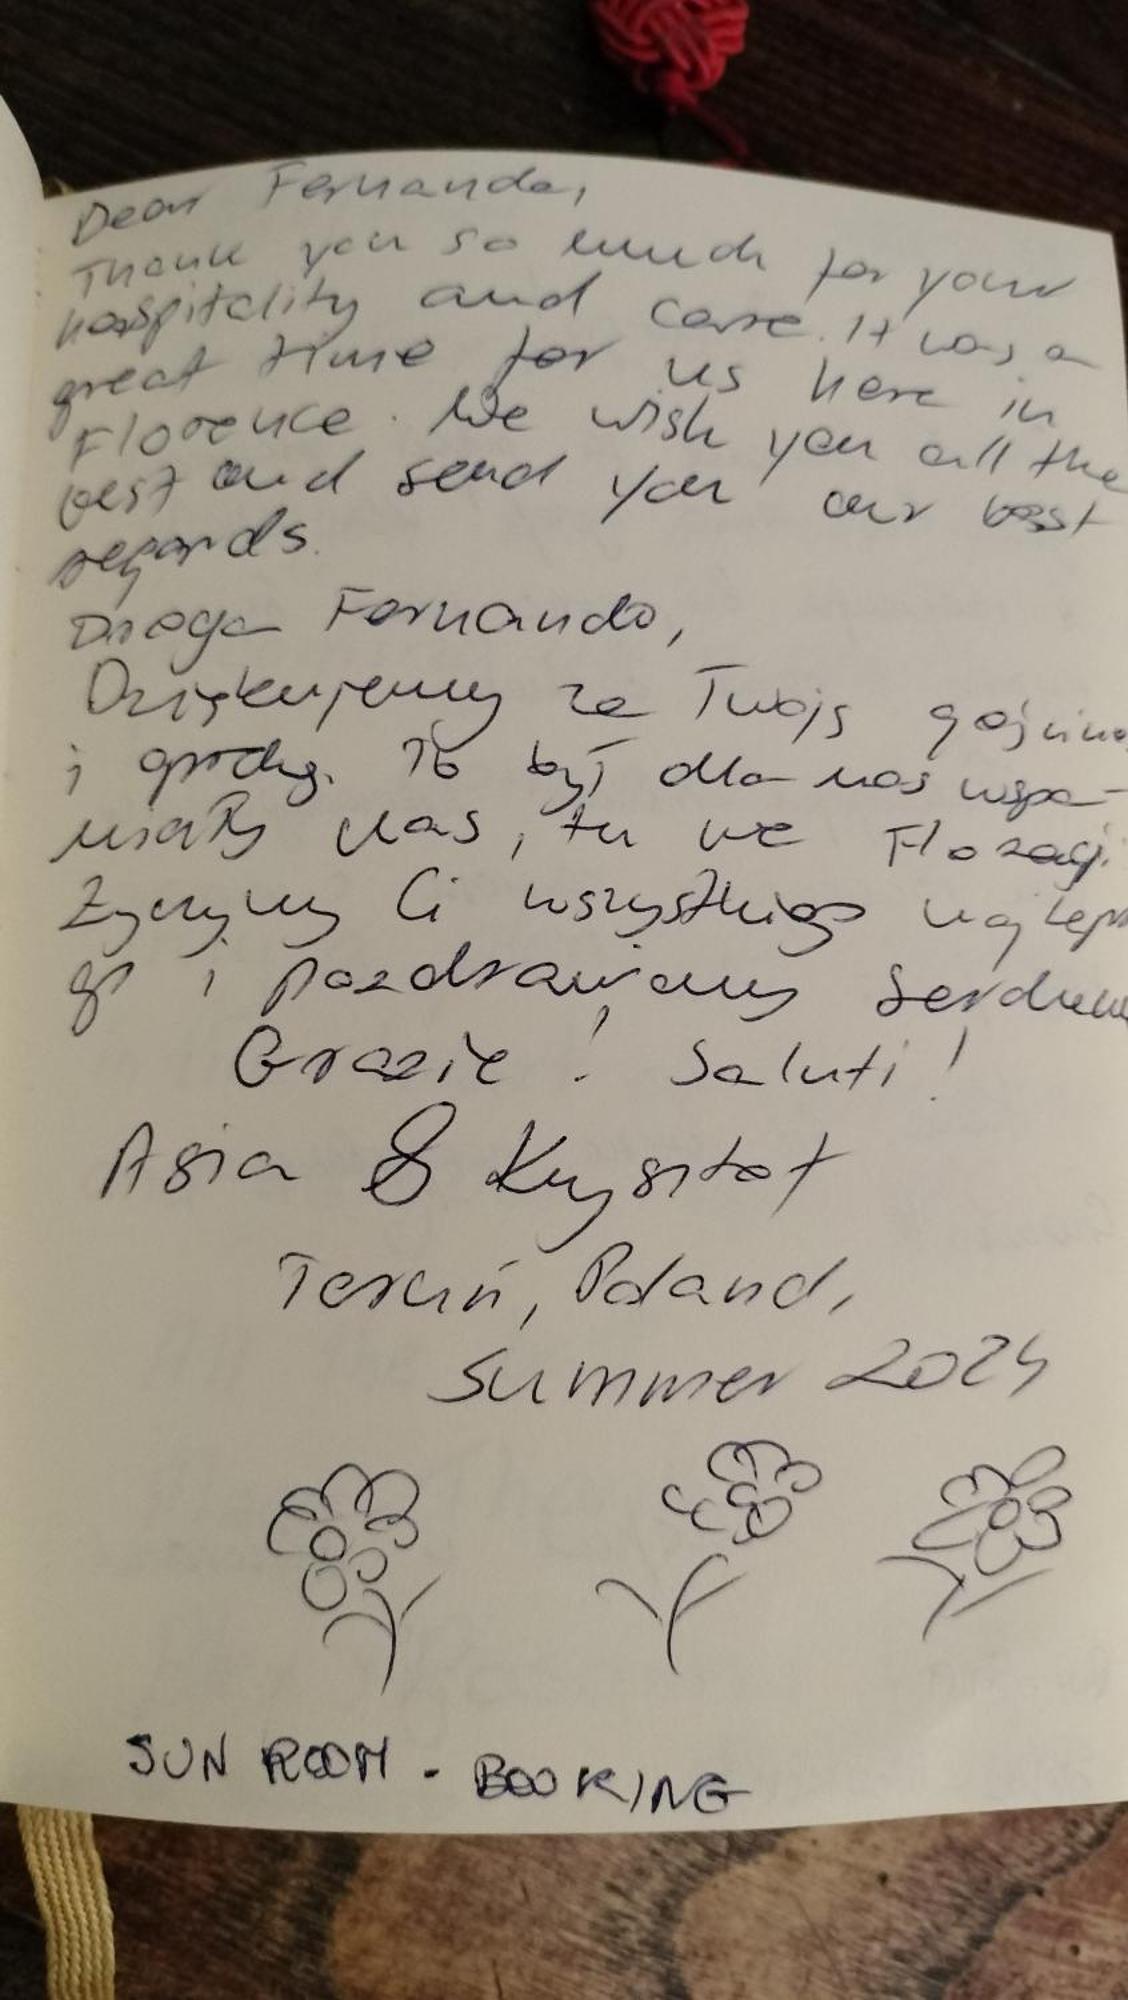 Dear Fernanda,
Thank you so much for your
hospitality and care. It was a
great time for us here in
Florence. We wish you all the
best and send you our best
regards.
Droga Fernando,
Dziękujemy za Twoją
i To był dla nas wspa-
niały czas, tu we
Życzymy Ci wszystkiego najlep
go i pozdrawiamy
Grazie! Saluti!
Asia & Krzysztof
Toruń, Poland,
Summer 2024
SUN ROOM - BOOKING